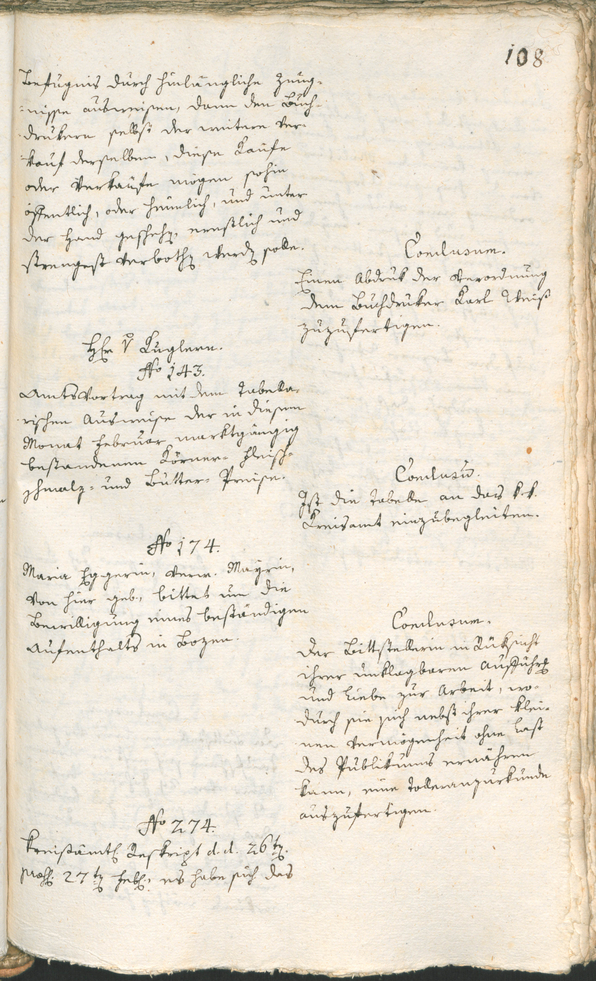 108
Befugnis durch hinlängliche Zeug-
nisse ausweisen, dann den Buch-
drukern selbst der weitere Ver-
kauf derselben, diese Kaufe
oder Verkaufe mögen sohin
öffentlich, oder heimlich, und unter
der Hand gescheh, ernstlich und
strengest verboth werd solle.
Conclusum.
Einen Abdruk der Verordnung
dem Buchdruker Karl Weiß
zuzufertigen.
H v Kuglern.
No 143.
Amtsvortrag mit dem Tabella-
rischen Ausweise der in diesem
Monat Februar marktgängig
bestandenen Körner- Fleisch-
schmalz- und Butter- Preise.
Conclusum.
Ist die Tabelle an das k. k.
Kreisamt einzubegleiten.
No 174.
Maria Eggerin, verw. Mayrin,
von hier geb. bittet um die
Bewilligung eines beständigen
Aufenthalts in Bozen.
Conclusum.
Der Bittstellerin in Rüksicht
ihrer unklagbaren Aufführg
und Liebe zur Arbeit, wo-
durch sie sich nebst ihrer klei-
nen Vermögenheit ohne Last
des Publikums ernähren
kann, eine Tolleranzurkunde
auszufertigen.
No 274.
Kreisämtl Reskript d. d. 26t
27t Feb. es habe sich das